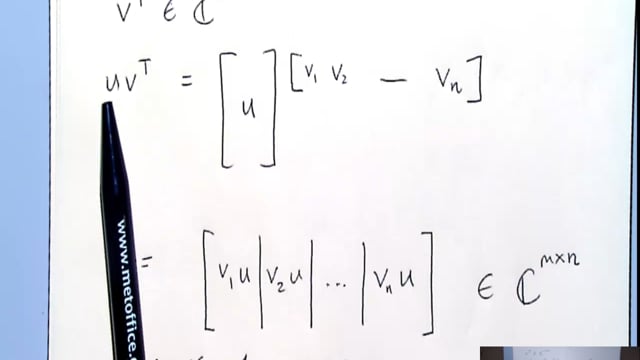 vᵀ ∈ ℂ
uvᵀ = [u] [v₁ v₂ — vₙ]
= [v₁u | v₂u | ... | vₙu] ∈ ℂᵐˣⁿ
www.metoffice.